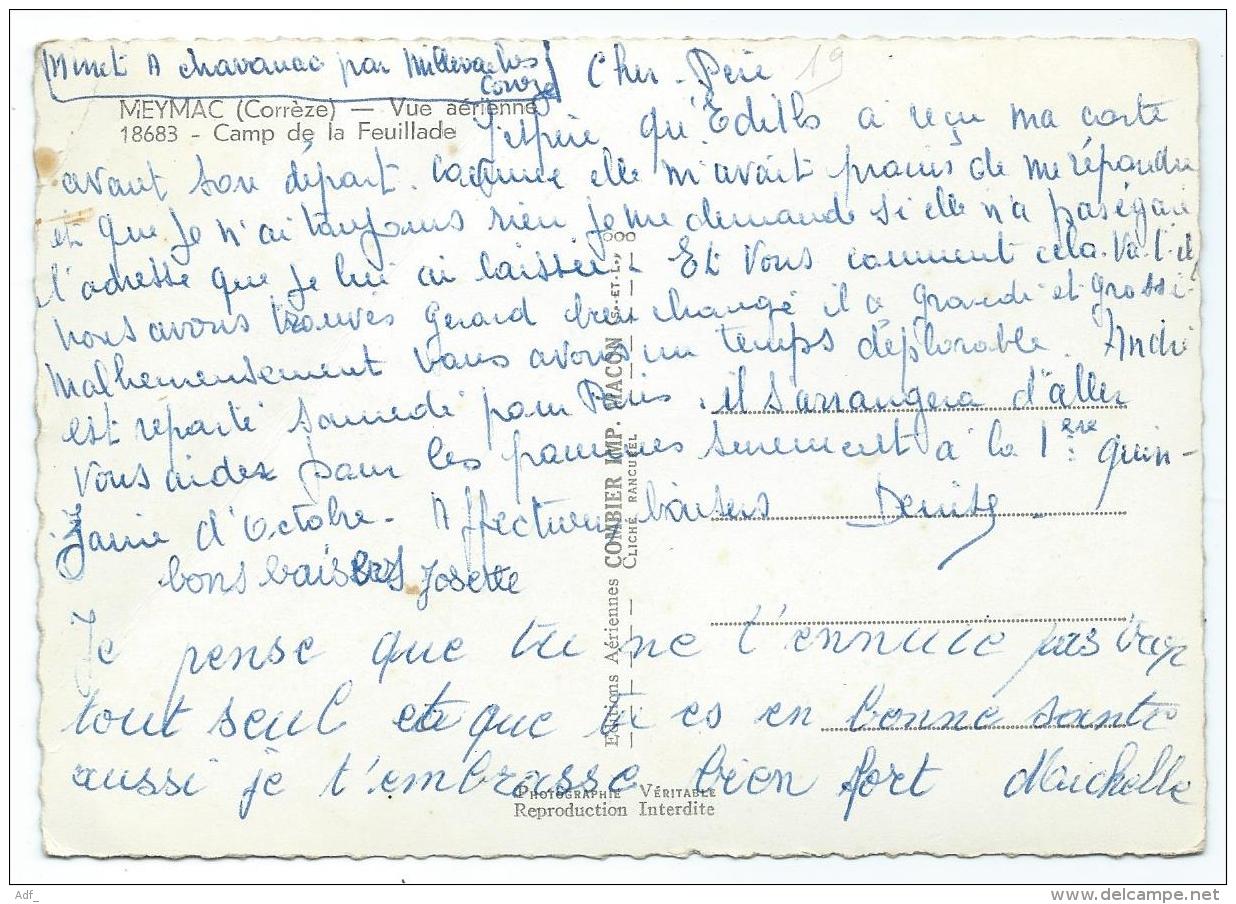 Minet A Chavanac par Millevaches
Corrèze
Cher Père
19
MEYMAC (Corrèze) — Vue aérienne
18683 - Camp de la Feuillade
J'espère qu'Edith a reçu ma carte
avant son départ. Comme elle m'avait promis de me répondre
et que je n'ai toujours rien je me demande si elle n'a pas égaré
l'adresse que je lui ai laissée. Et vous comment cela va-t-il
nous avons trouvés Gérard bien changé il a grandi et grossi.
Malheureusement nous avons un temps déplorable. André
est reparti samedi pour Paris. il s'arrangera d'aller
vous aider pour les pommes surement à la 1ère quin-
zaine d'Octobre. Affectueux baisers Denise
bons baisers Josette
Je pense que tu ne t'ennuie pas trop
tout seul et que tu es en bonne sante
aussi je t'embrasse bien fort Michelle
Editions Aériennes COMBIER IMP. MACON (S.-ET-L.)
CLICHÉ RANCUREL
PHOTOGRAPHIE VÉRITABLE
Reproduction Interdite
Adf_
www.delcampe.net